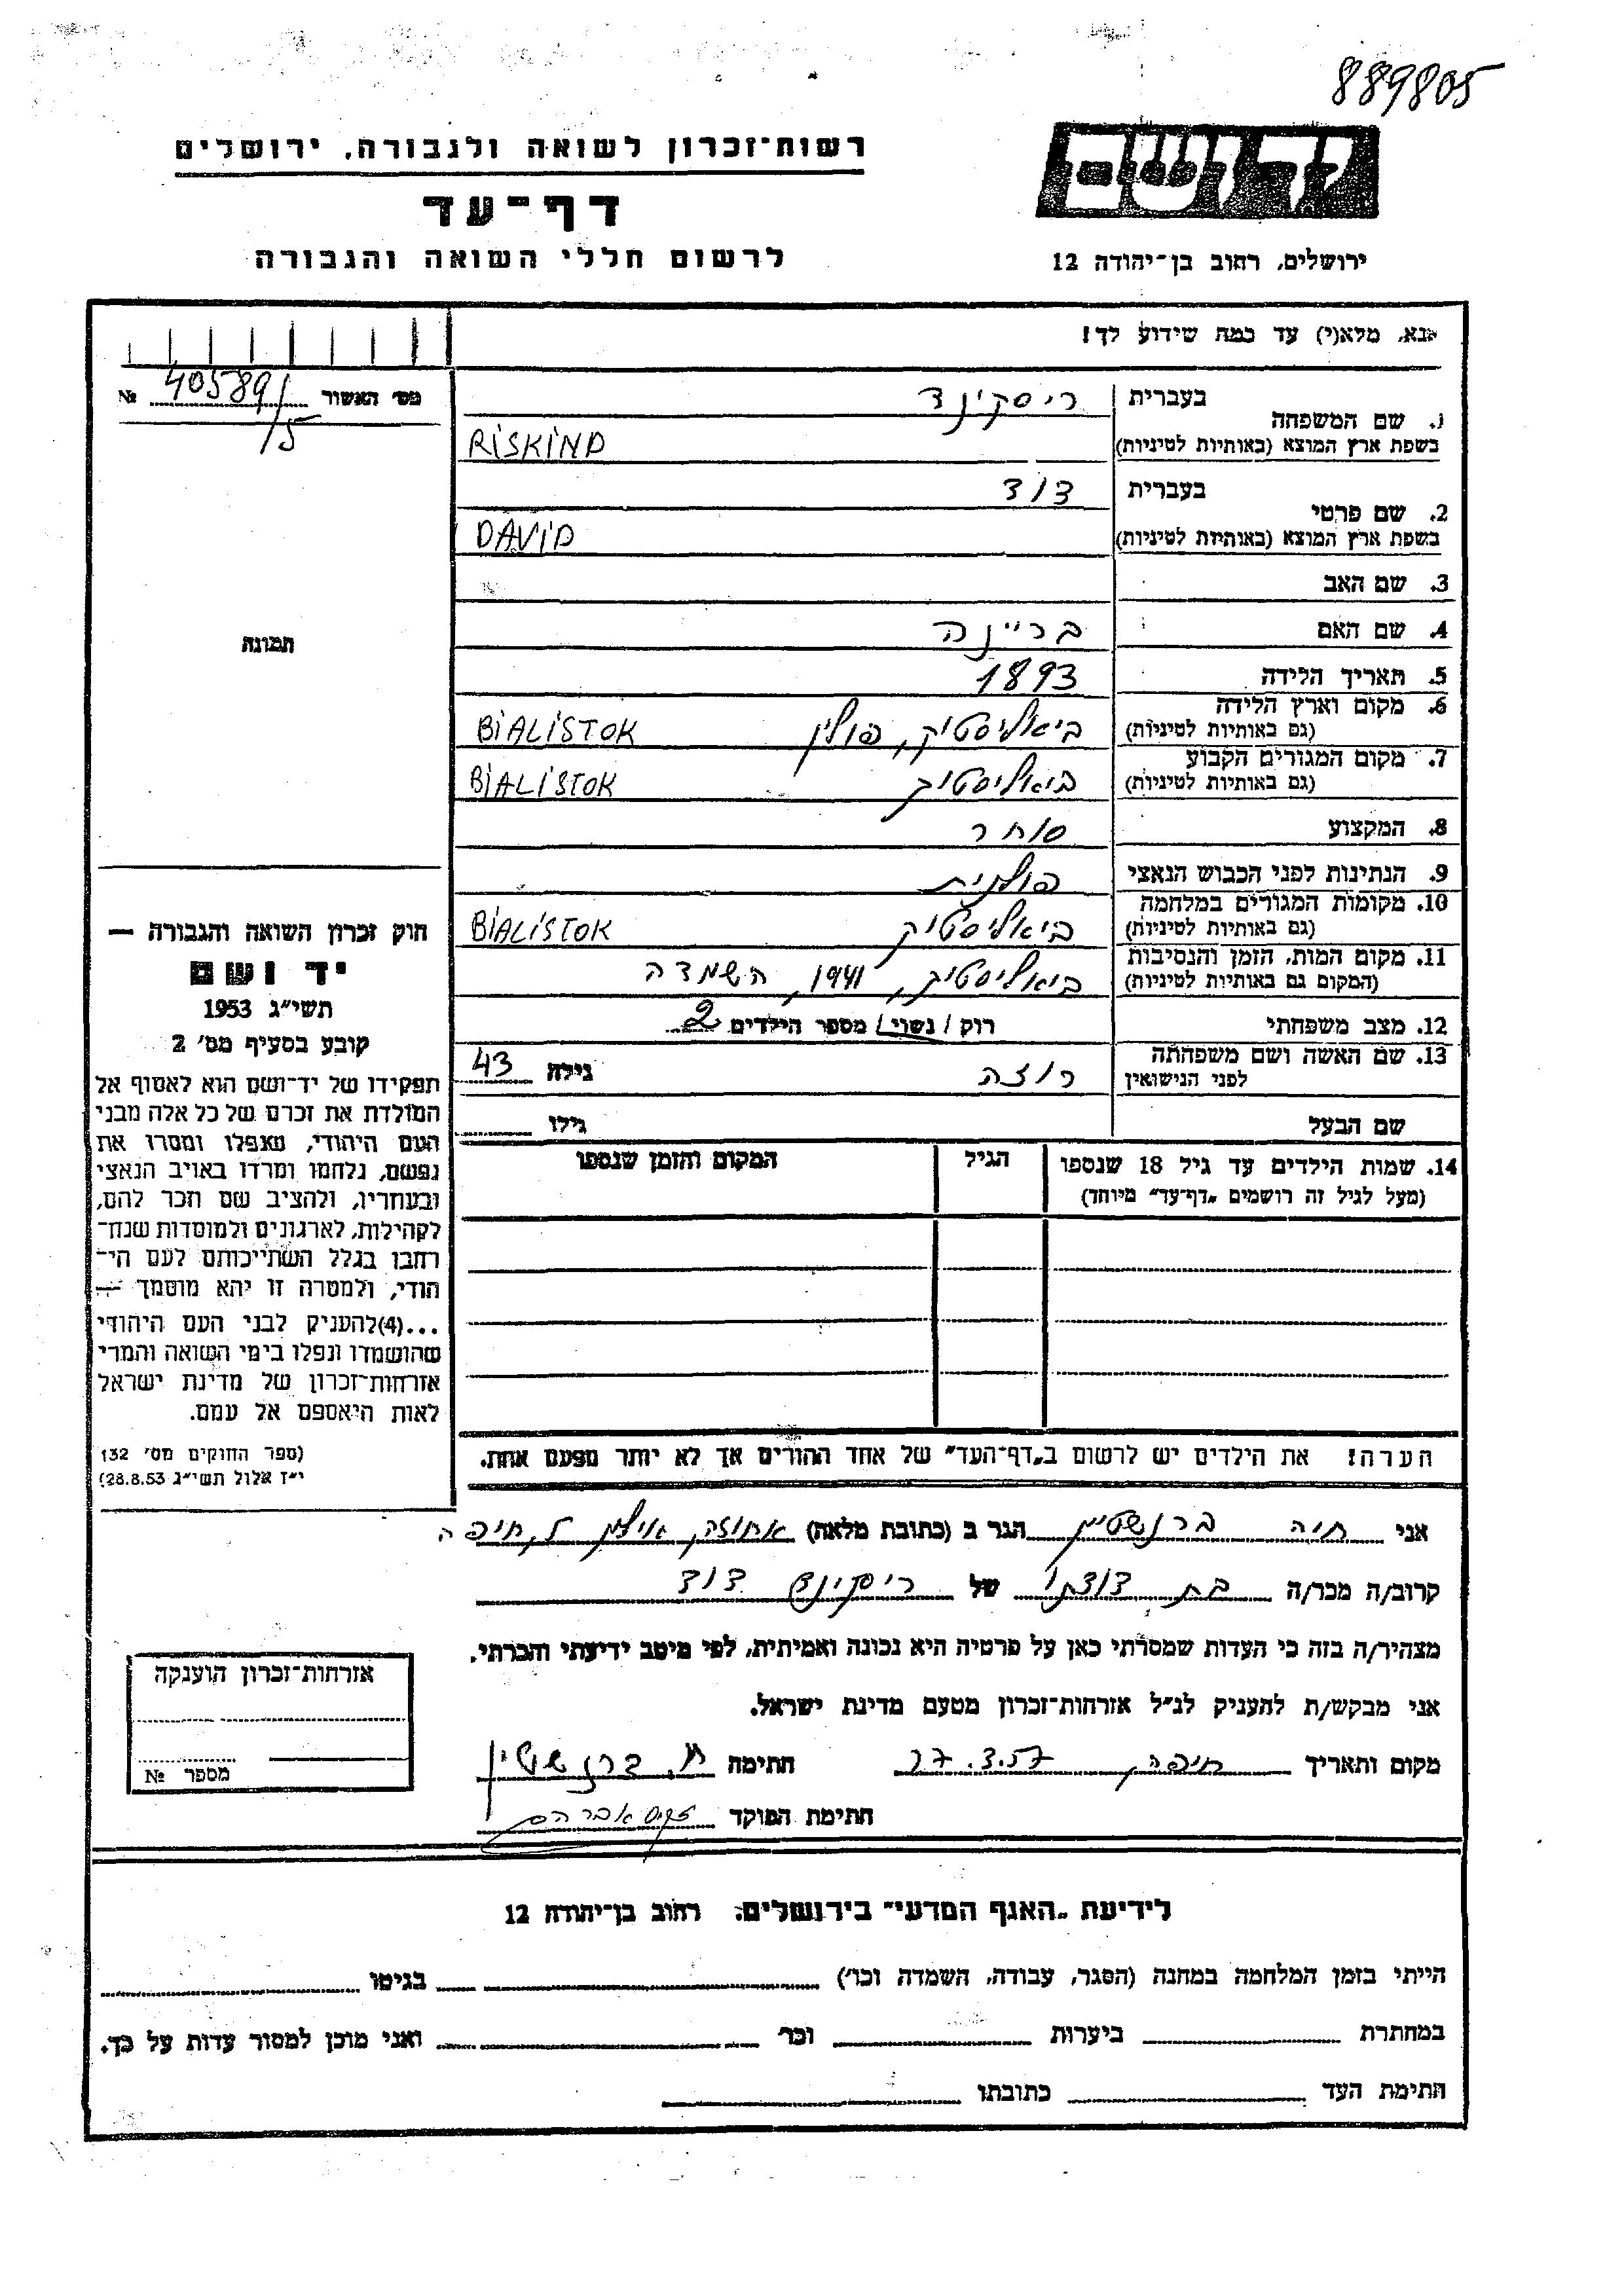 889805
רשות־זכרון לשואה ולגבורה, ירושלים
יד ושם
דף־עד
לרשום חללי השואה והגבורה
ירושלים, רחוב בן־יהודה 12
נא, מלא(י) עד כמה שידוע לך!
מס׳ האשור 40589/5 №
1. שם המשפחה בעברית ריסקינד
בשפת ארץ המוצא (באותיות לטיניות) RISKIND
2. שם פרטי בעברית דוד
בשפת ארץ המוצא (באותיות לטיניות) DAVID
3. שם האב
4. שם האם בריינה
5. תאריך הלידה 1893
6. מקום וארץ הלידה ביאליסטוק, פולין BIALISTOK
(גם באותיות לטיניות)
7. מקום המגורים הקבוע ביאליסטוק BIALISTOK
(גם באותיות לטיניות)
8. המקצוע סוחר
9. הנתינות לפני הכבוש הנאצי פולנית
10. מקומות המגורים במלחמה ביאליסטוק BIALISTOK
(גם באותיות לטיניות)
11. מקום המות, הזמן והנסיבות ביאליסטוק, 1941, השמדה
(המקום גם באותיות לטיניות)
12. מצב משפחתי רוק / נשוי / מספר הילדים 2
13. שם האשה ושם משפחתה רוזה גילה 43
לפני הנישואין
שם הבעל גילו
14. שמות הילדים עד גיל 18 שנספו הגיל המקום והזמן שנספו
(מעל לגיל זה רושמים „דף־עד״ מיוחד)
הערה! את הילדים יש לרשום ב„דף־העד״ של אחד ההורים אך לא יותר מפעם אחת.
תמונה
חוק זכרון השואה והגבורה —
יד ושם
תשי״ג 1953
קובע בסעיף מס׳ 2
תפקידו של יד־ושם הוא לאסוף אל
המולדת את זכרם של כל אלה מבני
העם היהודי, שנפלו ומסרו את
נפשם, נלחמו ומרדו באויב הנאצי
ובעוזריו, ולהציב שם וזכר להם,
לקהילות, לארגונים ולמוסדות שנח־
רבו בגלל השתייכותם לעם הי־
הודי, ולמטרה זו יהא מוסמך —
...(4) להעניק לבני העם היהודי
שהושמדו ונפלו בימי השואה והמרי
אזרחות־זכרון של מדינת ישראל
לאות היאספם אל עמם.
(ספר החוקים מס׳ 132
י״ז אלול תשי״ג 28.8.53)
אני חיה ברנשטיין הגר ב (כתובת מלאה) אחוזה, חיפה
קרוב/ה מכר/ה בת דודתו של ריסקינד דוד
מצהיר/ה בזה כי העדות שמסרתי כאן על פרטיה היא נכונה ואמיתית, לפי מיטב ידיעתי והכרתי.
אני מבקש/ת להעניק לנ״ל אזרחות־זכרון מטעם מדינת ישראל.
מקום ותאריך חיפה, 27.3.57 חתימה ח. ברנשטיין
חתימת הפוקד אברהם
אזרחות־זכרון הוענקה
מספר №
לידיעת „האגף המדעי״ בירושלים, רחוב בן־יהודה 12
הייתי בזמן המלחמה במחנה (הסגר, עבודה, השמדה וכו׳) בגיטו
במחתרת ביערות וכו׳ ואני מוכן למסור עדות על כך.
חתימת העד כתובתו